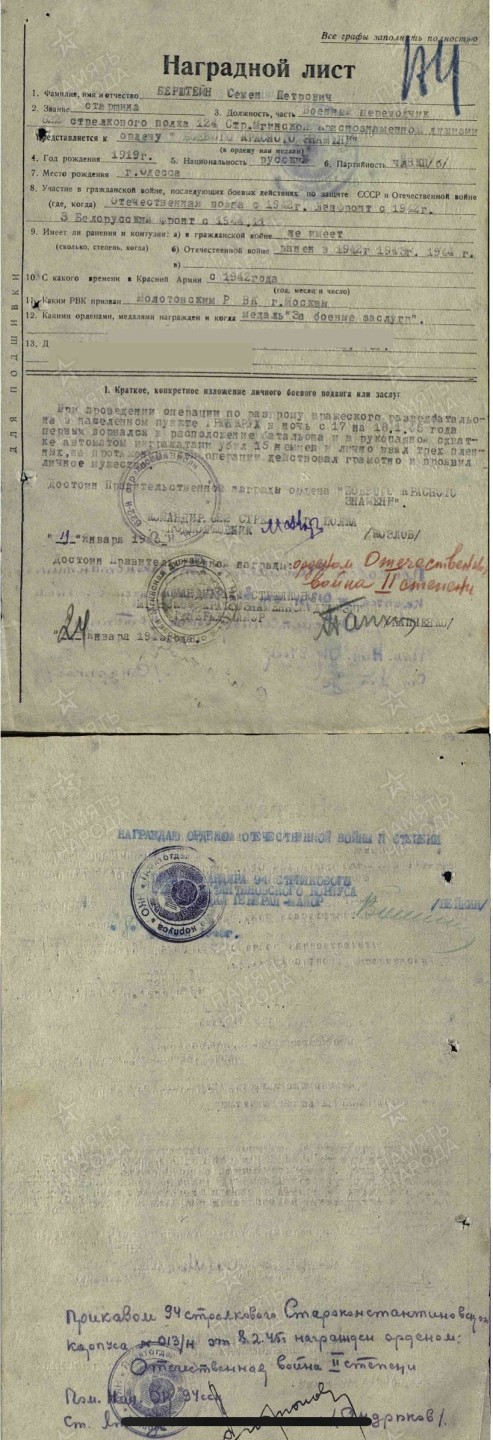 Все графы заполнить полностью
Наградной лист
1. Фамилия, имя и отчество БЕРШТЕЙН Семен Петрович
2. Звание старшина 3. Должность, часть Военный переводчик
622 стрелкового полка 124 Стр. Мгинской Краснознаменной дивизии
Представляется к ордену "БОЕВОГО КРАСНОГО ЗНАМЕНИ"
(к ордену или медали)
4. Год рождения 1919г. 5. Национальность русский 6. Партийность чл.ВКП/б/
7. Место рождения г.Одесса
8. Участие в гражданской войне, последующих боевых действиях по защите СССР и Отечественной войне
(где, когда) Отечественная война с 1942г. Ленфронт с 1942г.
3 Белорусский фронт с 1944
9. Имеет ли ранения и контузии: а) в гражданской войне не имеет
(сколько, степень, когда) б) Отечественной войне ранен в 1942г 1943г. 1944 г.
в)
10. С какого времени в Красной Армии с 1942года
(год, месяц и число)
11. Каким РВК призван Молотовским Р ВК г.Москвы
12. Какими орденами, медалями награжден и когда медаль "За боевые заслуги".
13. Д
ДЛЯ ПОДШИВКИ
I. Краткое, конкретное изложение личного боевого подвига или заслуг
При проведении операции по разгрому вражеского
на в населенном пункте в ночь с 17 на 18.1.45 года
первым ворвался в расположение батальона и в рукопашной схват-
ке автоматом и гранатами убил 15 немцев и лично взял трех плен-
ных, на протяжении операции действовал грамотно и проявил
личное мужество.
Достоин Правительственной награды ордена "БОЕВОГО КРАСНОГО
ЗНАМЕНИ".
КОМАНДИР 622 СТРЕЛКОВОГО ПОЛКА
ПОДПОЛКОВНИК /КОЗЛОВ/
января
Достоин Правительственной награды: орденом Отечественная
война II степени
КОМАНДИР СТРЕЛКОВОЙ
ГЕНЕРАЛ МАЙОР
"24" января
НАГРАЖДАЮ ОРДЕНОМ ОТЕЧЕСТВЕННОЙ ВОЙНЫ II СТЕПЕНИ
КОМАНДИРА 94 СТРЕЛКОВОГО
КОРПУСА
ГЕНЕРАЛ-МАЙОР
Приказом 94 стрелкового Староконстантиновского
корпуса № 013/н от 8.2.45г. награжден орденом:
Отечественная война II степени
Пом. нач. ОК 94ск
Ст.